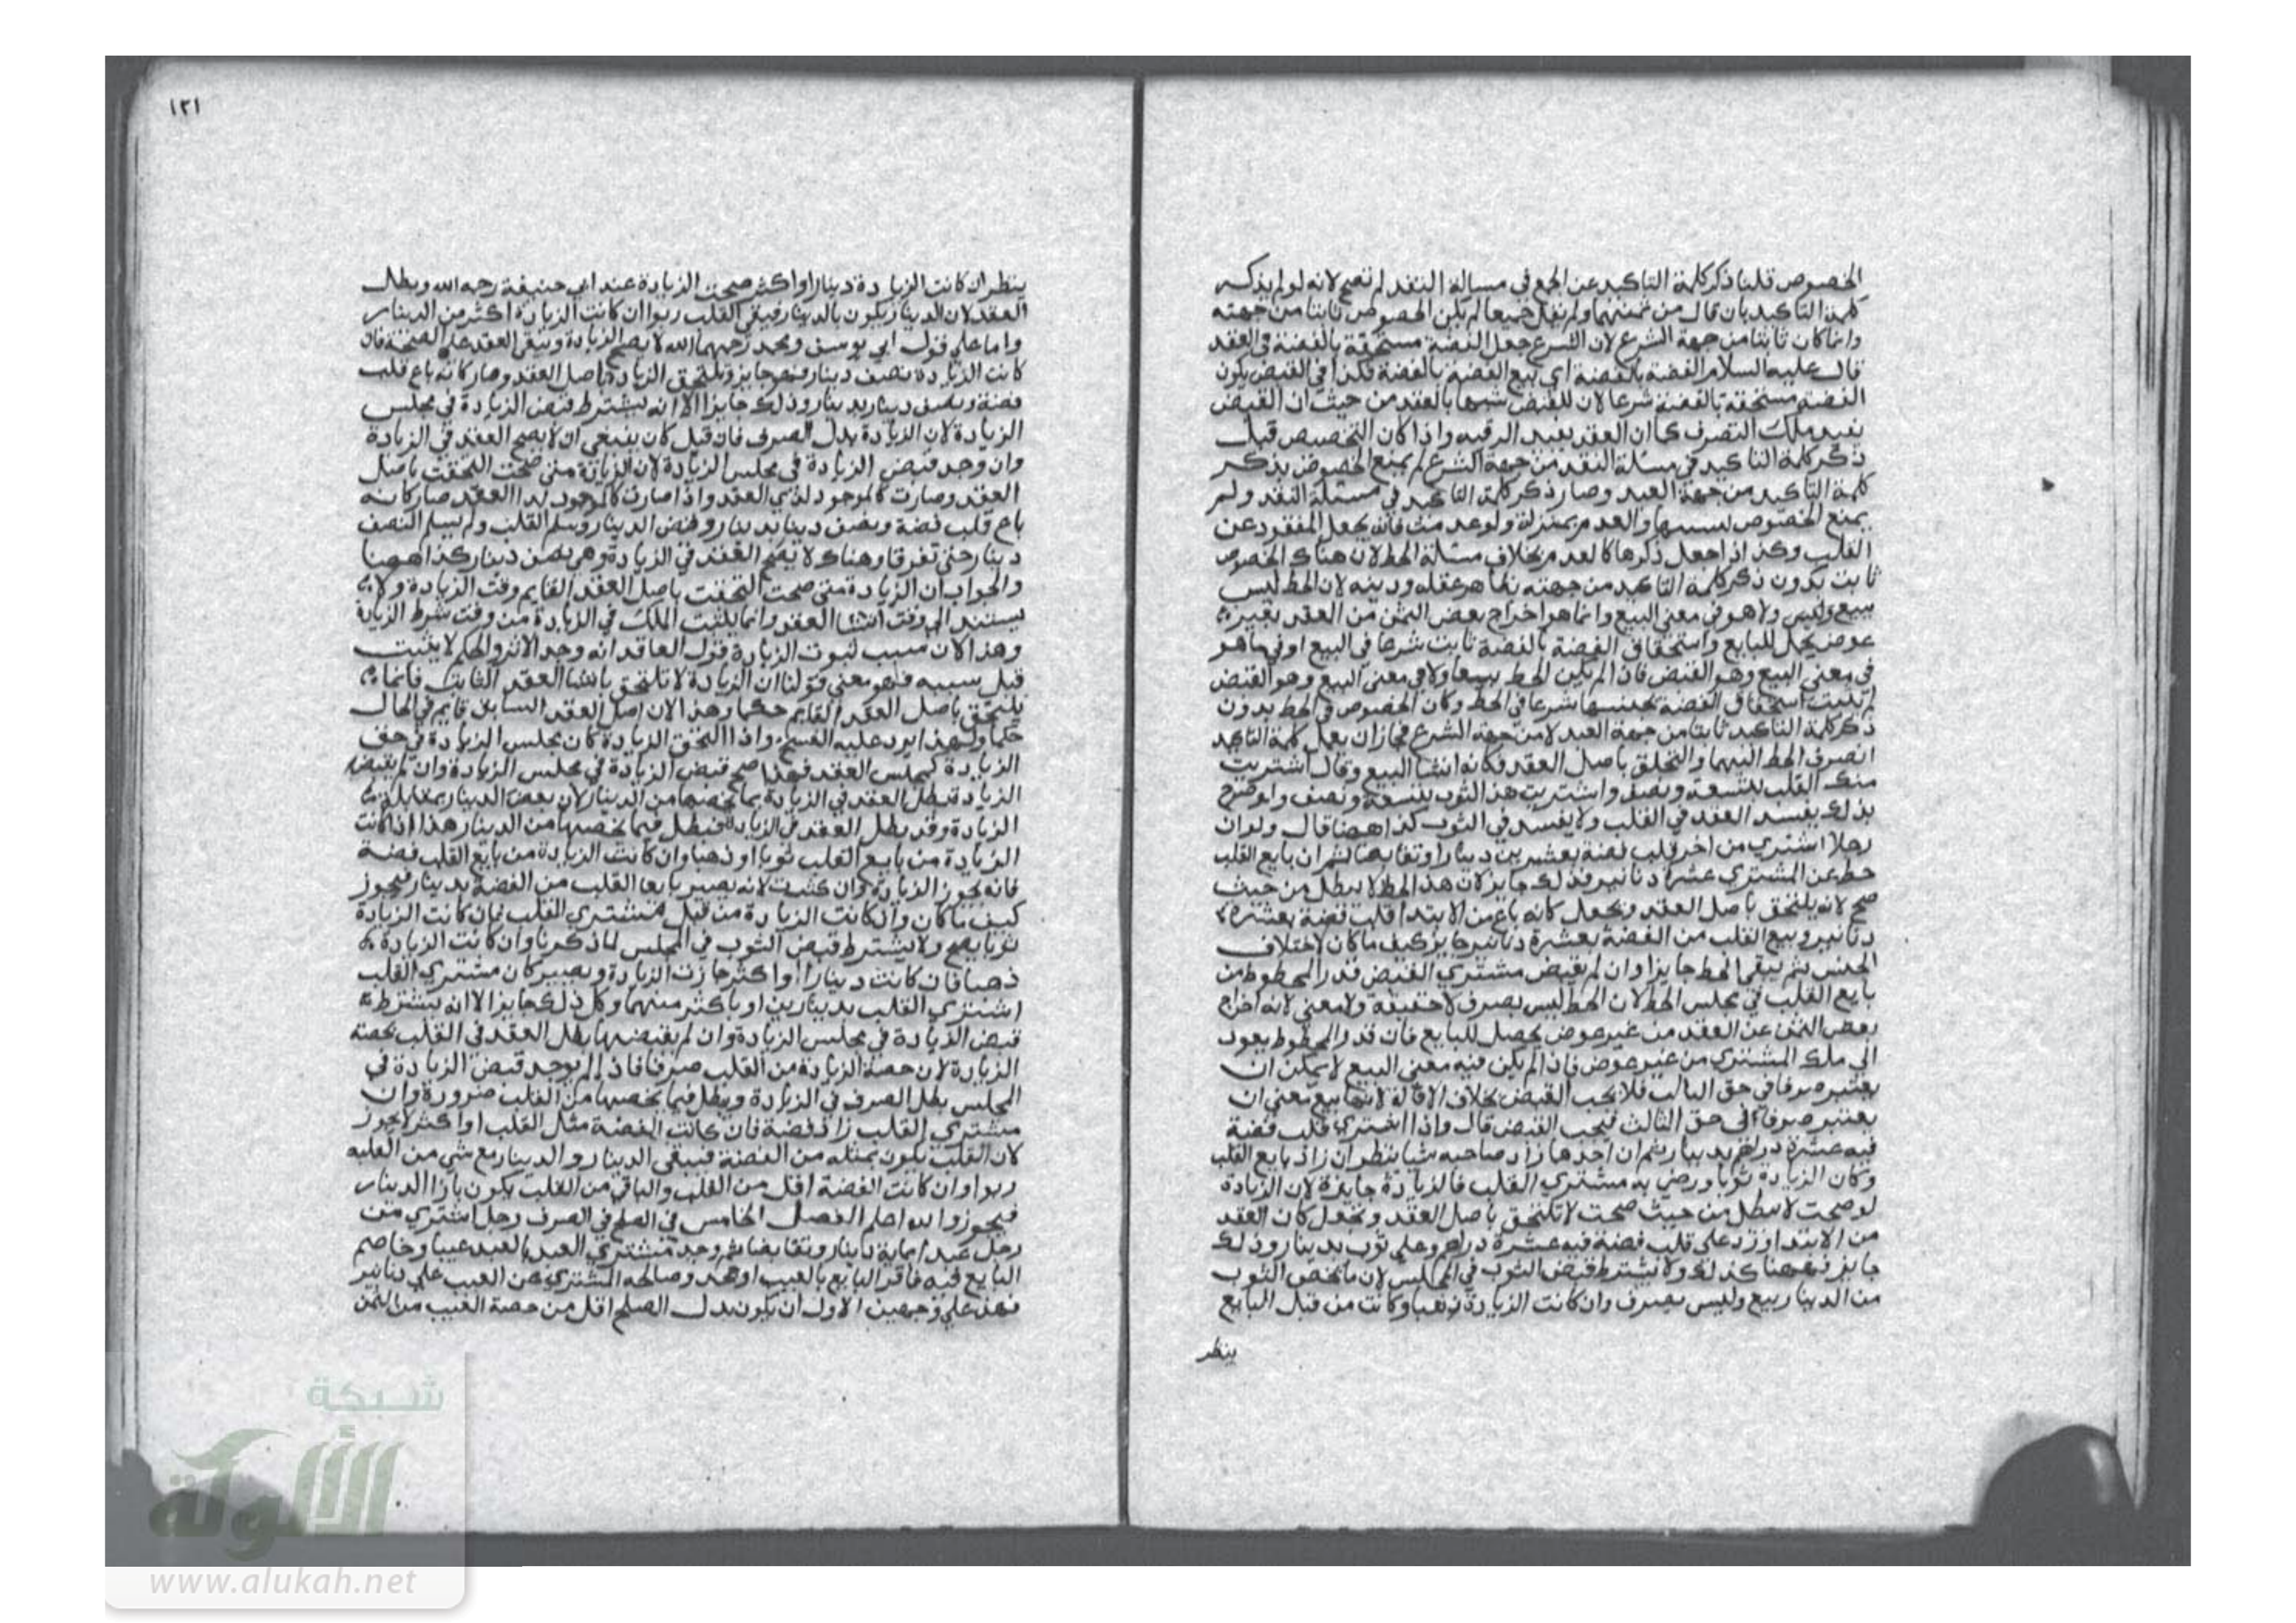 الخصوص قلنا ذكر كلمة التاكيد عن الجمع في مسالة النقد لم تصح لانه لو لم يذكر
كلمة التاكيد بان قال من ثمنهما ولم يقل جميعا لم يكن الخصوص ثابتا من جهته
وانما كان ثابتا من جهة الشرع لان الشرع جعل الفضة مستحقة بالفضة في العقد
قال عليه السلام الفضة بالفضة اي بيع الفضة بالفضة فكذا في القبض يكون
الفضة مستحقة بالفضة شرعا لان للقبض شبها بالعقد من حيث ان القبض
يفيد ملك التصرف كما ان العقد يفيد الرقبه واذا كان التخصيص قبل
ذكر كلمة التاكيد في مسئلة النقد من جهة الشرع لم يمنع الخصوص بذكر
كلمة التاكيد من جهة العبد وصار ذكر كلمة التاكيد في مسئلة النقد ولم
يمنع الخصوص بسببها والعدم بمنزلة ولو عدمت فانه يجعل المنقود عن
القلب وكذا اذا جعل ذكرها كالعدم بخلاف مسئلة الحط لان هناك الخصوص
ثابت بدون ذكر كلمة التاكيد من جهته نظاهر عقله ودينه لان الحط ليس
ببيع وليس ولا هو في معنى البيع وانما هو اخراج بعض الثمن من العقد بغير
عوض يحل للبايع واستحقاق الفضة بالفضة ثابت شرعا في البيع او فيما هو
في معنى البيع وهو القبض فان لم يكن الحط بيعا ولا في معنى البيع وهو القبض
لم يثبت استحقاق الفضة بجنسها شرعا في الحط وكان الخصوص في الحط بدون
ذكر كلمة التاكيد ثابتا من جهة العبد لا من جهة الشرع فجاز ان يعمل كلمة التاكيد
انصرف الحط اليهما والتحلق باصل العقد فكانه انشا البيع وقال اشتريت
منك القلب بتسعة ونصف واشتريت هذا الثوب بتسعة ونصف ولو صرح
بذلك يفسد العقد في القلب ولا يفسد في الثوب كذا ههنا قال ولو ان
رجلا اشترى من اخر قلب فضة بعشرين دينارا وتقابضا ثم ان بايع القلب
حط عن المشتري عشرة دنانير فذلك جايز لان هذا الحط لا يبطل من حيث
صح لانه يلتحق باصل العقد ويجعل كانه باع من الابتدا قلب فضة بعشرة
دنانير وبيع القلب من الفضة بعشرة دنانير جايز كيف ما كان لاختلاف
الجنس ثم يبقى الحط جايزا وان لم يقبض مشتري القبض قدر المحطوط من
بايع القلب في مجلس الحط لان الحط ليس بصرف لا حقيقة ولا معنى لانه اخراج
بعض الثمن عن العقد من غير عوض يحصل للبايع فان قدر المحطوط يعود
الى ملك المشتري من غير عوض فاذا لم يكن فيه معنى البيع لا يمكن ان
يعتبره صرفا في حق الثالث فلا يجب القبض بخلاف الاقالة لانها بيع بمعنى ان
يعتبر صرفا في حق الثالث فيجب القبض قال واذا اشترى قلب فضة
فيه عشرة دراهم بدينار ثم ان احدهما زاد صاحبه شيا ينظر ان زاد بايع القلب
وكان الزيادة ثوبا ورضي به مشتري القلب فالزيادة جايزة لان الزيادة
لو صحت لا تبطل من حيث صحت لا تلتحق باصل العقد ويجعل كان العقد
من الابتدا ورد على قلب فضة فيه عشرة دراهم وعلى ثوب بدينار وذلك
جايز فههنا كذلك ولا يشترط قبض الثوب في المجلس لان ما يخص الثوب
من الدينار بيع وليس بصرف وان كانت الزيادة ذهبا وكانت من قبل البايع
ينظر
١٢١
ينظر ان كانت الزيادة دينارا او اكثر صحت الزيادة عند ابي حنيفة رحمه الله وبطل
العقد لان الدينار يكون بالدينار فيبقى القلب ربوا ان كانت الزيادة اكثر من الدينار
واما على قول ابي يوسف ومحمد رحمهما الله لا يصح الزيادة ويبقى العقد على الصحة فان
كانت الزيادة نصف دينار فهو جايز ويلتحق الزيادة باصل العقد وصار كانه باع قلب
فضة ونصف دينار بدينار وذلك جايزا الا انه يشترط قبض الزيادة في مجلس
الزيادة لان الزيادة بدل الصرف فان قيل كان ينبغي ان لا يصح العقد في الزيادة
وان وجد قبض الزيادة في مجلس الزيادة لان الزيادة متى صحت التحقت باصل
العقد وصارت كالموجود لدي العقد واذا صارت كالموجود لدا العقد صار كانه
باع قلب فضة ونصف دينار بدينار وقبض الدينار وسلم القلب ولم يسلم النصف
دينار حتى تفرقا وهناك لا يصح العقد في الزيادة وهي نصف دينار كذا ههنا
والجواب ان الزيادة متى صحت التحقت باصل العقد القايم وقت الزيادة ولا
يستند الى وقت انشا العقد وانما يثبت الملك في الزيادة من وقت شرط الزيادة
وهذا لان سبب ثبوت الزيادة قول العاقد انه وجد الاثر والحكم لا يثبت
قبل سببه فهو معنى قولنا ان الزيادة لا تلتحق بانشا العقد الثابت فانما
يلتحق باصل العقد القايم حكما وهذا لان اصل العقد السابق قايم في الحال
حكما ولهذا يرد عليه الفسخ واذا التحق الزيادة كان مجلس الزيادة في حق
الزيادة كمجلس العقد فهذا صح قبض الزيادة في مجلس الزيادة وان لم يقبض
الزيادة تبطل العقد في الزيادة بما يخصها من الدينار لان بعض الدينار بمقابلة
الزيادة وقد بطل العقد في الزيادة فيبطل فيما يخصها من الدينار هذا اذا كانت
الزيادة من بايع القلب ثوبا او ذهبا وان كانت الزيادة من بايع القلب فضة
فانه يجوز الزيادة وان كثرت لانه يصير بايعا القلب من الفضة بدينار فيجوز
كيف ما كان وان كانت الزيادة من قبل مشتري القلب فان كانت الزيادة
ثوبا يصح ولا يشترط قبض الثوب في المجلس لما ذكرنا وان كانت الزيادة
ذهبا فان كانت دينارا او اكثر جازت الزيادة ويصير كان مشتري القلب
اشترى القلب بدينارين او باكثر منهما وكل ذلك جايزا الا انه يشترط
قبض الزيادة في مجلس الزيادة وان لم يقبضها بطل العقد في القلب بحصة
الزيادة لان حصة الزيادة من القلب صرف فاذا لم يوجد قبض الزيادة في
المجلس بطل الصرف في الزيادة ويبطل فيما يخصها من القلب ضرورة وان
مشتري القلب زاد فضة فان كانت الفضة مثل القلب او اكثر لا يجوز
لان القلب يكون بمثله من الفضة فيبقى الدينار والدينار مع شي من الغلبه
ربوا وان كانت الفضة اقل من القلب والباقي من القلب يكون بازا الدينار
فيجوز والله اعلم الفصل الخامس في الصلح في الصرف رجل اشترى من
رجل عبدا بماية دينار وتقابضا ثم وجد مشتري العبد بالعبد عيبا وخاصم
البايع فيه فاقر البايع بالعيب او جحد وصالحه المشتري عن العيب على دنانير
فهذا على وجهين الاول ان يكون بدل الصلح اقل من حصة العيب من الثمن
شبكة
الألوكة
www.alukah.net